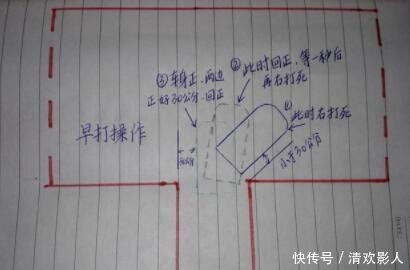 ③车身正,两边
正好30公分.回正
②此时回正.等一秒后
再右打死
①
此时右打死
早打操作
30公分
小于30公分
快传号/清欢影人